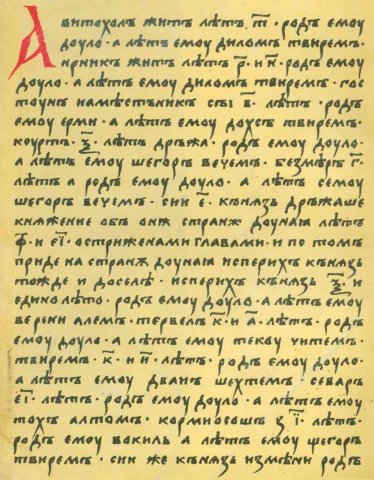 Авитохолъ житъ лѣтъ. т҃· родъ емоу
доуло· а лѣтъ емоу диломъ твиремъ·
ирникъ житъ лѣтъ р҃· и н҃· родъ емоу
доуло· а лѣтъ емоу диломъ твиремъ· гос
тоунъ намѣстьникъ сы в҃· лѣтъ· родъ
емоу ерми· а лѣтъ емоу дохсъ твиремъ·
коуртъ· ѯ҃· лѣтъ дръжа· родъ емоу доуло·
а лѣтъ емоу шегоръ вечемъ· безмѣръ г҃·
лѣтъ а родъ емоу доуло· а лѣтъ семоу
шегоръ вечемъ· сии е҃· кънязъ дръжаше
княжение объ онѫ странѫ доуная лѣтъ
ф҃· и еı҃· остриженами главами· и по томъ
приде на странѫ доуная исперихъ кънязь
тожде и доселѣ· исперихъ кънязь ѯ҃· и
едино лѣто· родъ емоу доуло· а лѣтъ емоу
верени алемъ· тервелъ к҃· и а҃· лѣтъ· родъ
емоу доуло· а лѣтъ емоу текоу читемъ·
твиремъ· к҃· и и҃· лѣтъ· родъ емоу доуло·
а лѣтъ емоу дванъ шехтемъ· севаръ
еı҃· лѣтъ· родъ емоу доуло· а лѣтъ емоу
тохъ алтомъ· кормисошъ зı҃· лѣтъ·
родъ емоу вокиль а лѣтъ емоу шегоръ
твиремъ· сии же кънязь измѣни родъ